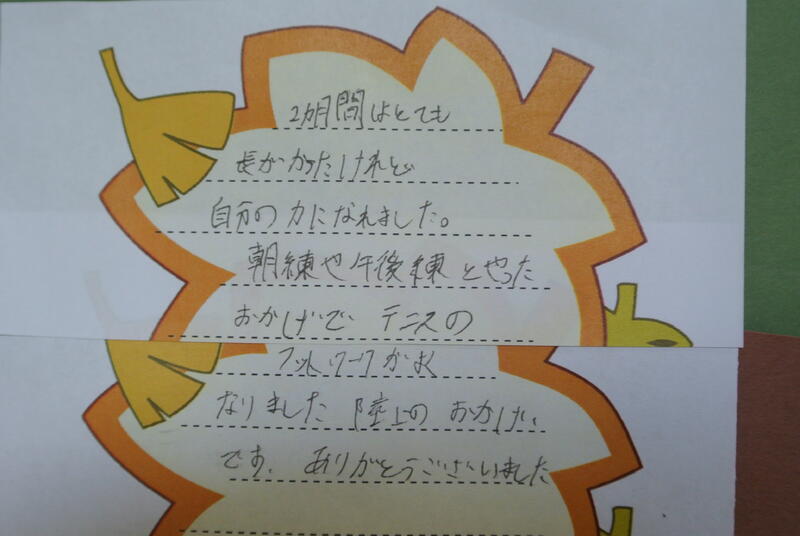 2ヵ月間はとても
長がかったけれど
自分の力になれました。
朝練や午後練とやった
おかげで テニスの
フットワークがよく
なりました 陸上のおかげ
です。ありがとうございました